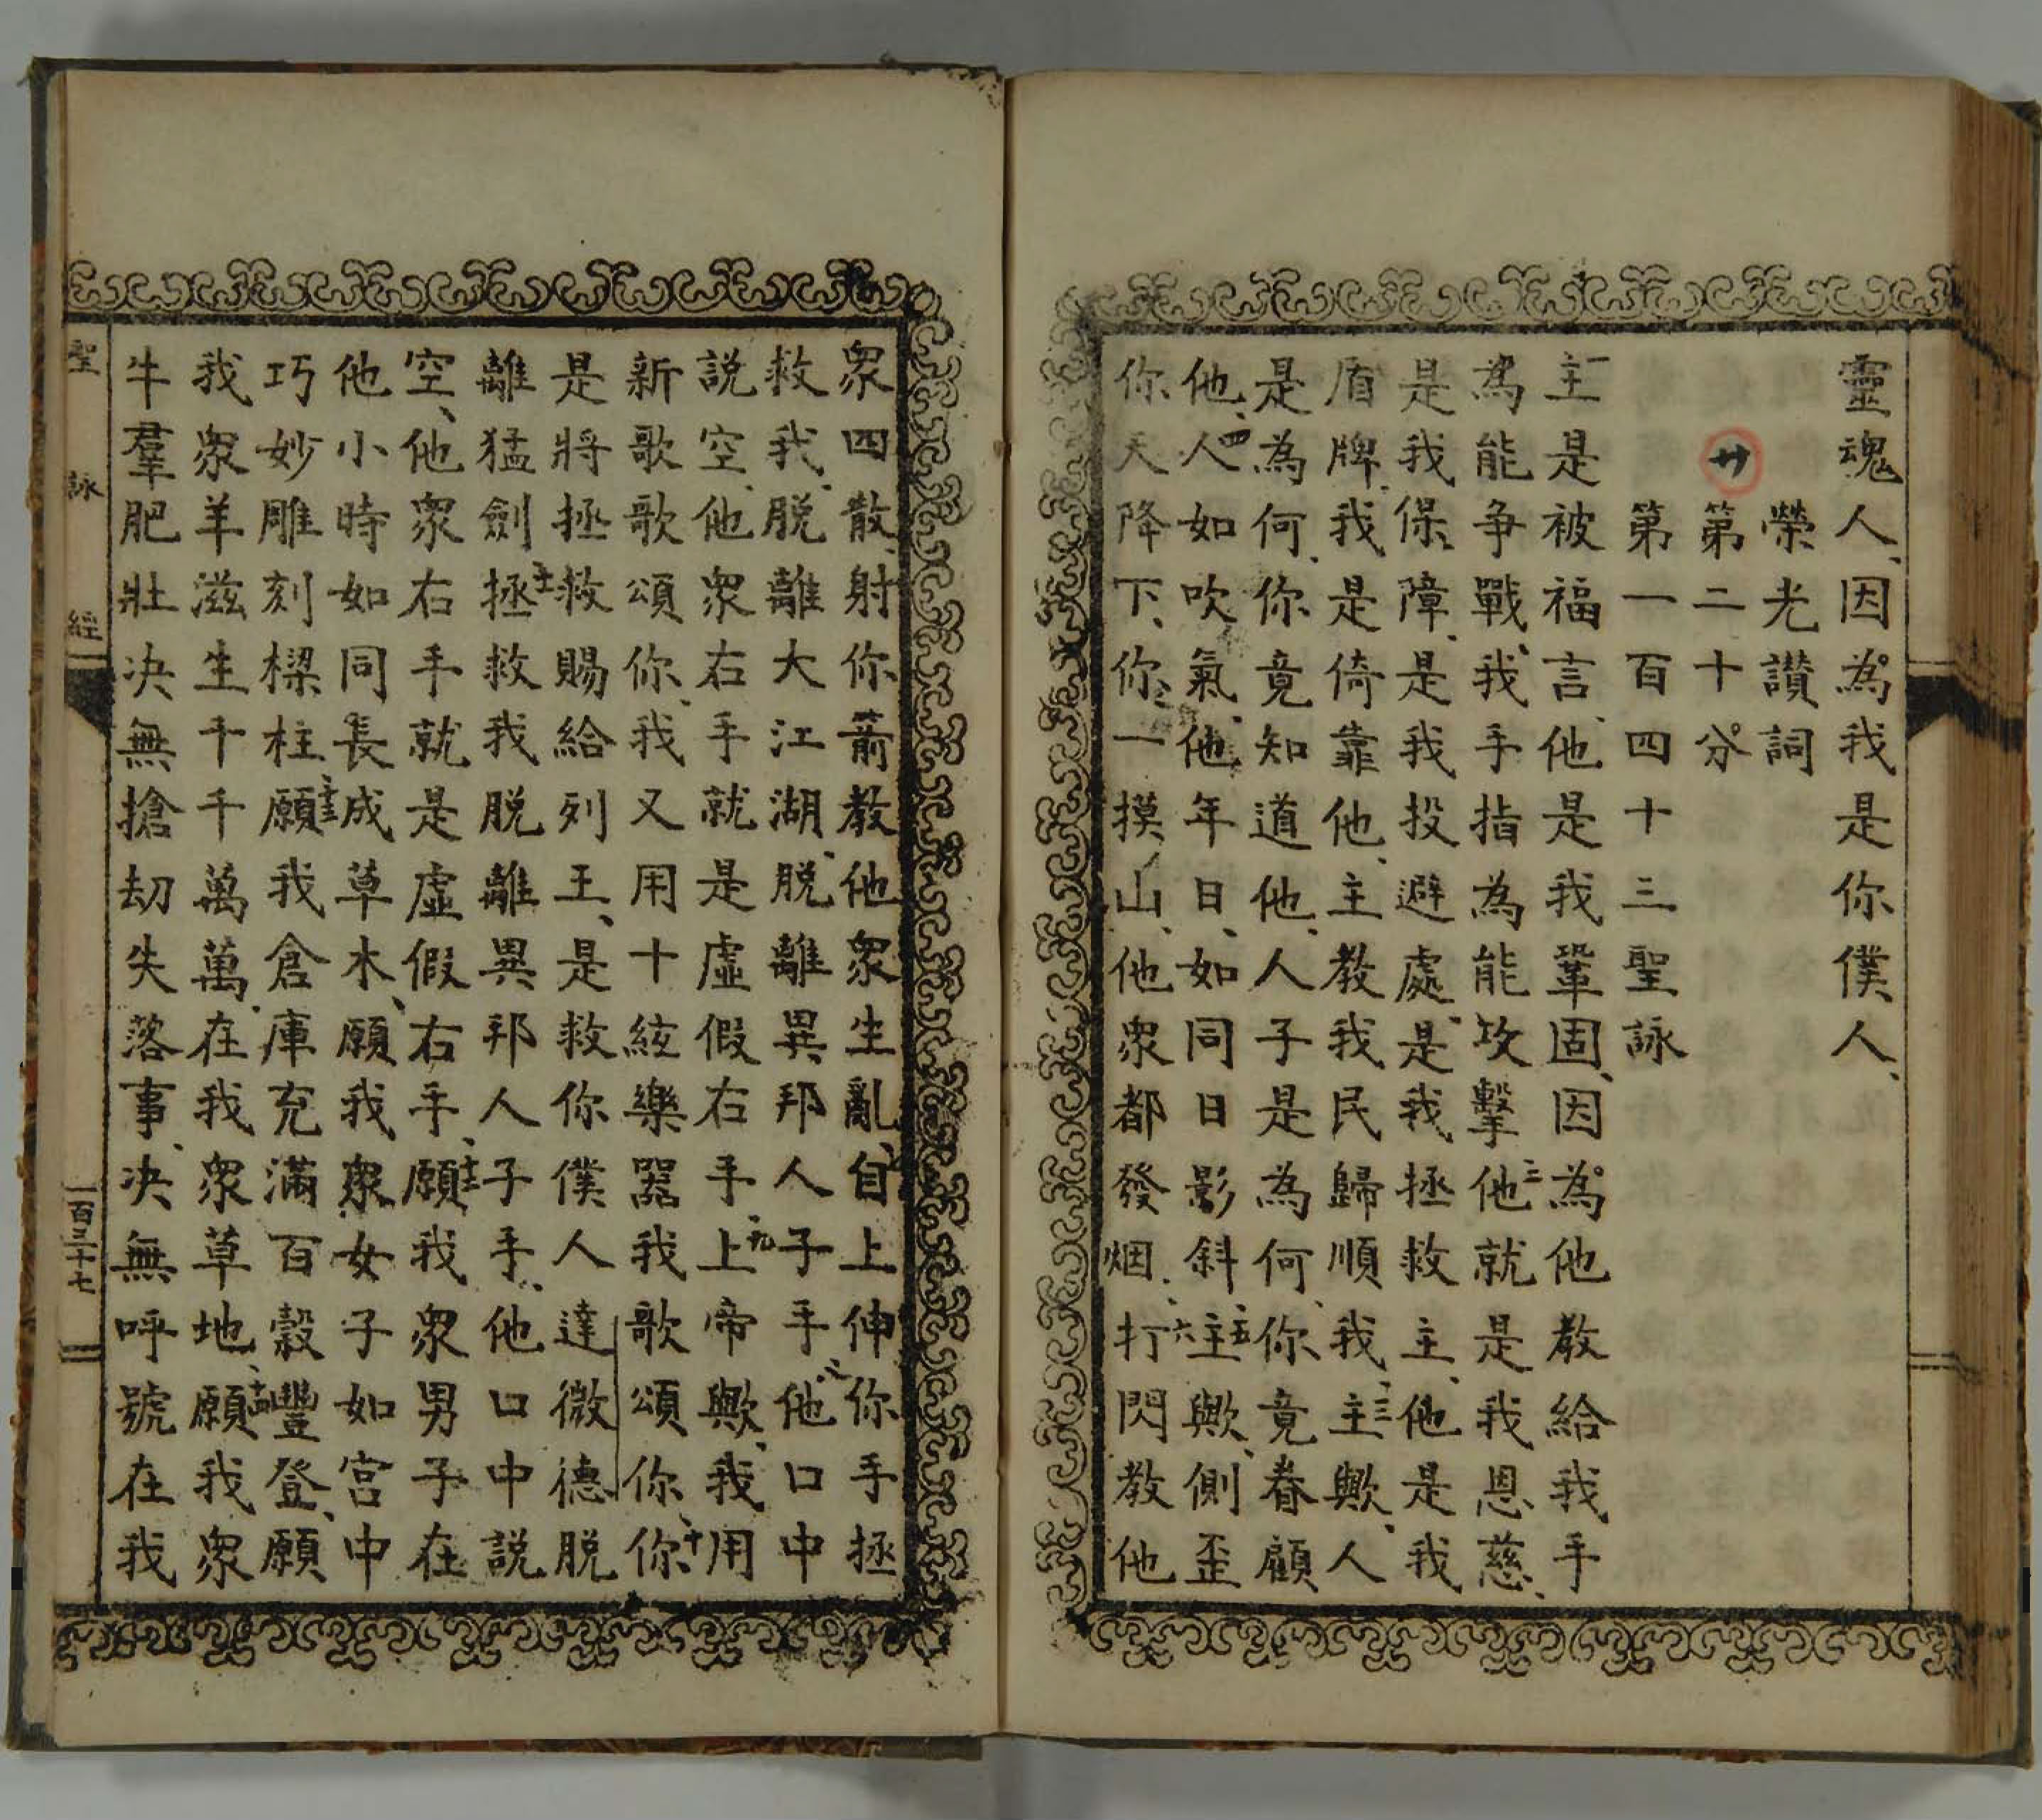 靈魂人、因為我是你僕人、
榮光讃詞
廾 第二十分
第一百四十三聖詠
一主是被福言、他是我鞏固、因為他教給我手
為能争戰、我手指為能攻擊、二他就是我恩慈、
是我保障、是我投避處、是我拯救主、他是我
盾牌、我是倚靠他、主教我民歸順我、三主歟、人
是為何、你竟知道他、人子是為何、你竟眷顧
他、四人如吹氣、他年日、如同日影斜、五主歟、側歪
你天降下、你一摸山、他衆都發烟、六打閃教他
衆四散、射你箭教他衆生亂、七自上伸你手拯
救我、脱離大江湖、脱離異邦人子手、八他口中
説空、他衆右手就是虚假右手、九上帝歟、我用
新歌歌頌你、我又用十絃樂器我歌頌你、十你
是將拯救賜給列王、是救你僕人達微德脱
離猛劍、十一拯救我脱離異邦人子手、他口中説
空、他衆右手就是虚假右手、十二願我衆男子在
他小時如同長成草木、願我衆女子如宫中
巧妙雕刻樑柱、十三願我倉庫充滿百穀豐登、願
我衆羊滋生千千萬萬、在我衆草地、十四願我衆
牛羣肥壯决無搶刧失落事、决無呼號在我
聖詠經
一百三十七